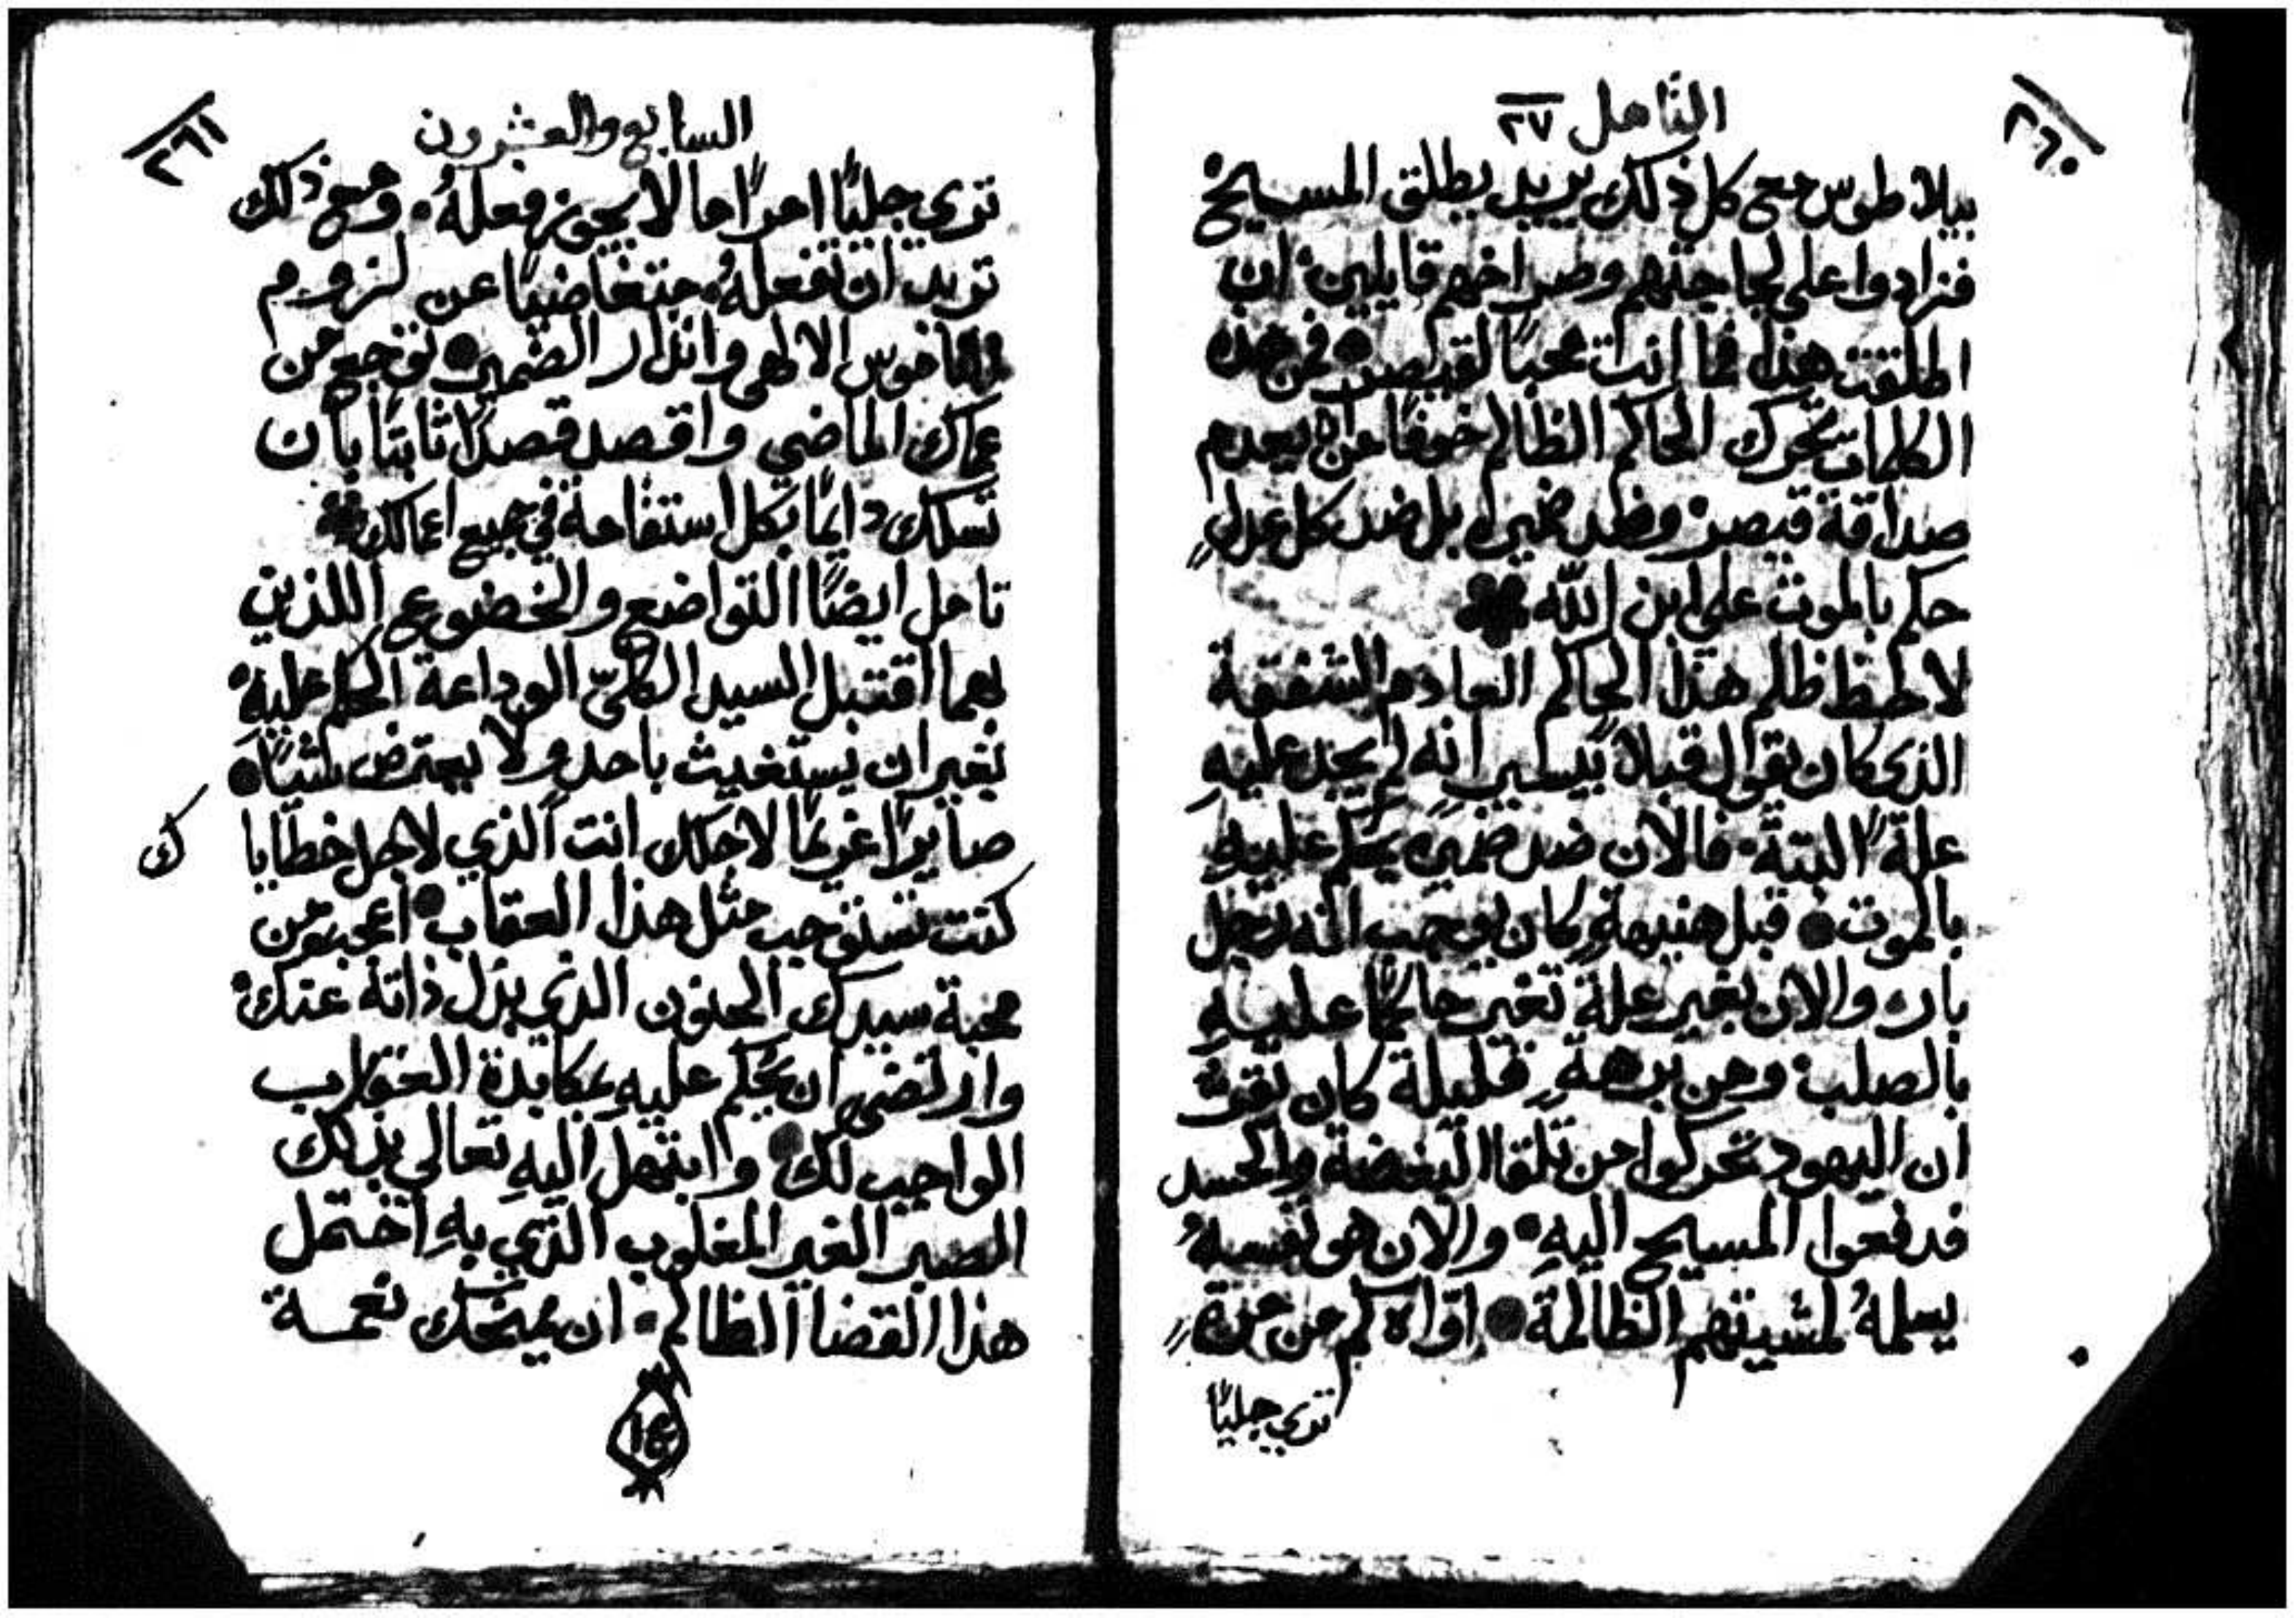 ٢٦٠
التامل ٢٧
بيلاطوس مع كل ذلك يريد يطلق المسيح
فزادوا على لجاجتهم وصراخهم قايلين: ان
اطلقت هذا فما انت محبًا لقيصر • فمن هذه
الكلمات تحرك الحاكم الظالم خوفًا من ان يعدم
صداقة قيصر: وضد ضميره بل ضد كل عدلٍ
حكم بالموت على ابن الله
لاحظ ظلم هذا الحاكم العادم الشفقة
الذي كان يقول قبلاً بيسيرٍ انه لم يجد عليهِ
علةً البتة • فالان ضد ضميره يحكم عليهِ
بالموت • قبل هنيهةٍ كان يوجب انه رجل
بار: والان بغير علةٍ تغير حاكمًا عليهِ
بالصلب: ومن برهةٍ قليلة كان يقرّ
ان اليهود تحركوا من تلقا البغضة والحسد
فدفعوا المسيح اليهِ • والان هو نفسهُ
يسلمهُ لمشيتهم الظالمة • اوّاه كم من مرةٍ
تري جليًا
٢٦١
السابع والعشرون
تري جليًا امرًا ما لا يجوز فعلهُ • ومع ذلك
تريد ان تفعلهُ • متغاضيًا عن لزوم
الناموس الالهي وانذار الضمير • توجع من
عماك الماضي واقصد قصدًا ثابتًا بان
تسلك دايمًا بكل استقامة في جميع اعمالك
تامل ايضًا التواضع والخضوع اللذين
بهما اقتبل السيد الكليّ الوداعة الحكم عليهِ:
بغير ان يستغيث باحد ولا يعترض بشيًا •
صايرًا غريمًا لاجلك انت الذي لاجل خطاياك
كنت تستوجب مثل هذا العقاب • اعجب من
محبة سيدك الحنون الذي بذل ذاتهُ عنك:
وارتضى ان يحكم عليهِ بمكابدة العقاب
الواجب لك • وابتهل اليهِ تعالي بذلك
الصبر الغير المغلوب الذي بهِ احتمل
هذا القضا الظالم • ان يمنحك نعمة
١٤